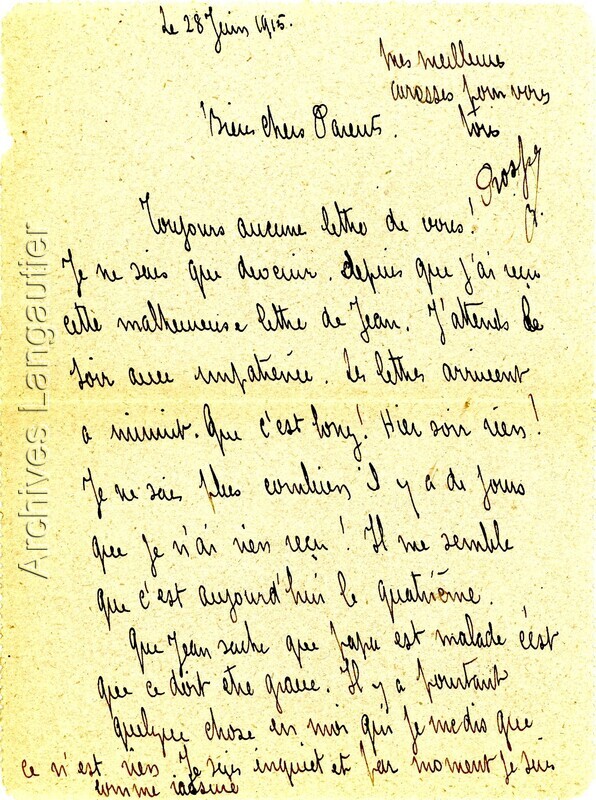 Le 28 Juin 1915.
Mes meilleures
caresses pour vous
tous
Prosper
Biens Chers Parents.
Toujours aucune lettre de vous!
Je ne sais que devenir. depuis que j'ai reçu
cette malheureuse lettre de Jean. J'attends le
soir avec impatience. Les lettres arrivent
a minuit. Que c'est long! Hier soir rien!
Je ne sais plus combien il y a de jours
que je n'ai rien reçu! Il me semble
que c'est aujourd'hui le quatrième.
Que Jean sache que papa est malade c'est
que ce doit etre grave. Il y a pourtant
quelque chose en moi qui je me dis que
ce n'est rien Je suis inquiet et par moment je suis
comme rassuré
Archives Langautier